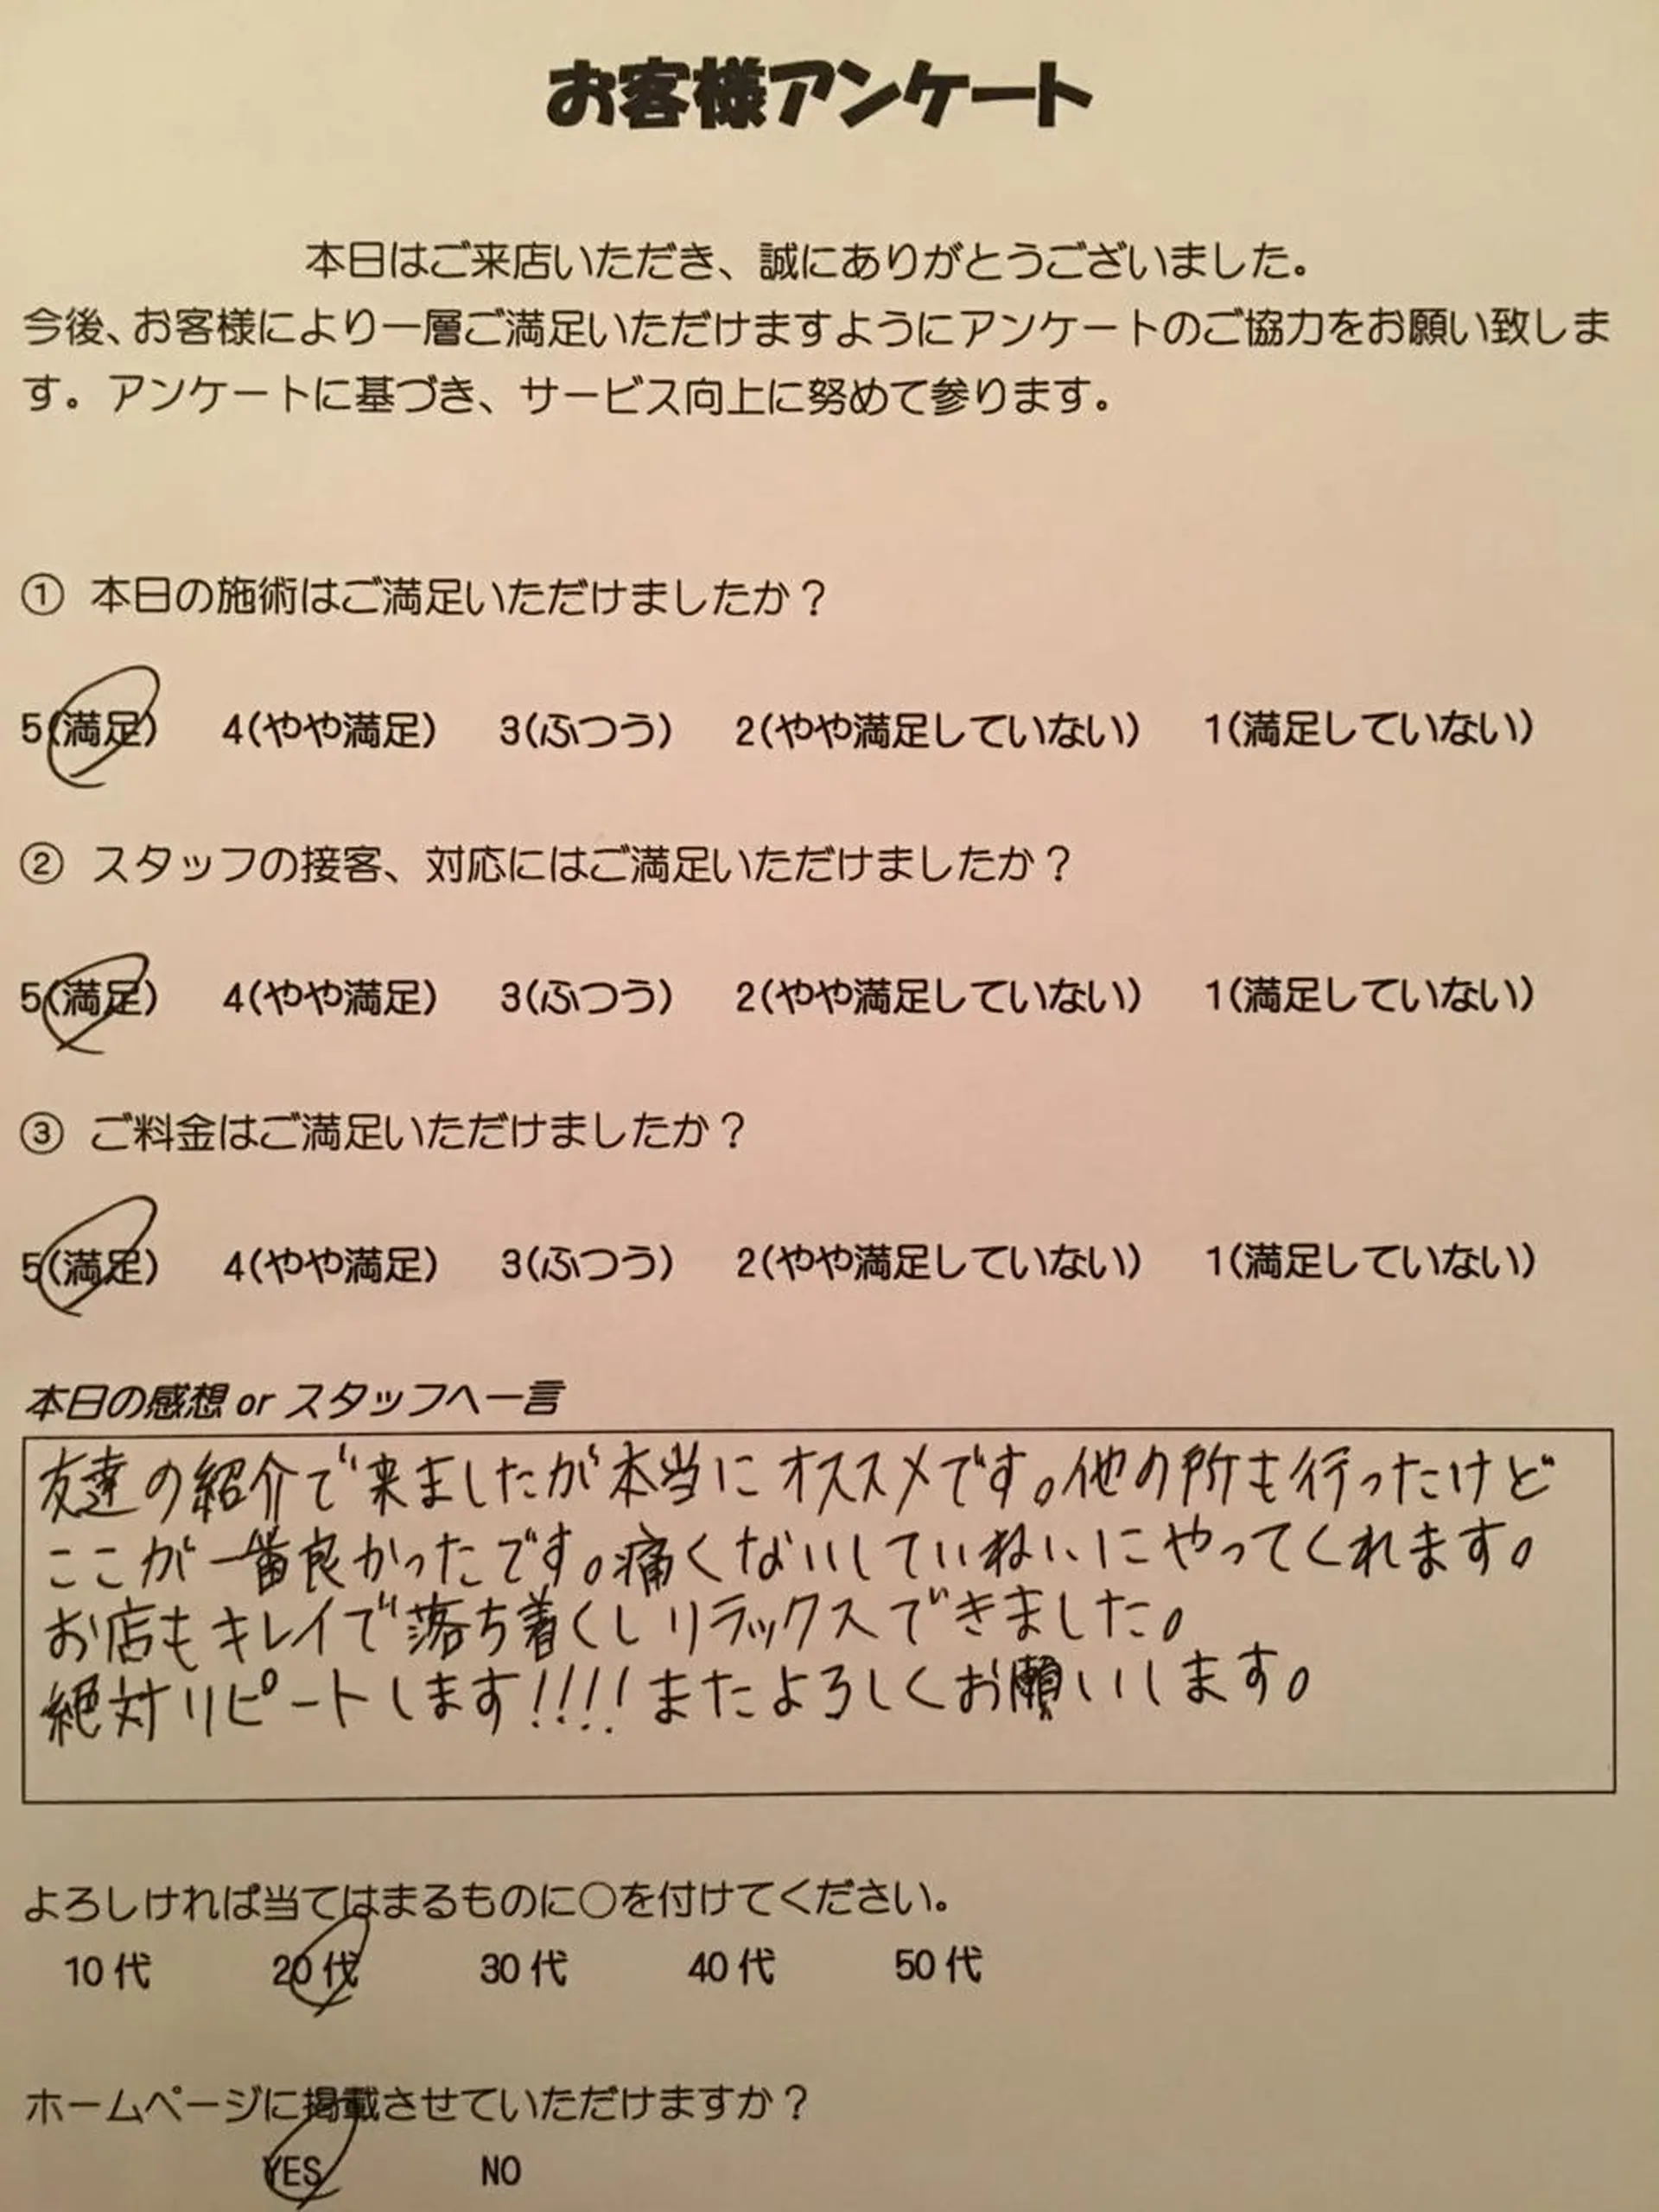 お客様アンケート
本日はご来店いただき、誠にありがとうございました。
今後、お客様により一層ご満足いただけますようにアンケートのご協力をお願い致しま
す。アンケートに基づき、サービス向上に努めて参ります。
① 本日の施術はご満足いただけましたか？
5(満足) 4(やや満足) 3(ふつう) 2(やや満足していない) 1(満足していない)
② スタッフの接客、対応にはご満足いただけましたか？
5(満足) 4(やや満足) 3(ふつう) 2(やや満足していない) 1(満足していない)
③ ご料金はご満足いただけましたか？
5(満足) 4(やや満足) 3(ふつう) 2(やや満足していない) 1(満足していない)
本日の感想 or スタッフへ一言
友達の紹介で来ましたが本当にオススメです。他の所も行ったけど
ここが一番良かったです。痛くないしていねいにやってくれます。
お店もキレイで落ち着くしリラックスできました。
絶対リピートします!!!!またよろしくお願いします。
よろしければ当てはまるものに○を付けてください。
10代 20代 30代 40代 50代
ホームページに掲載させていただけますか？
YES NO